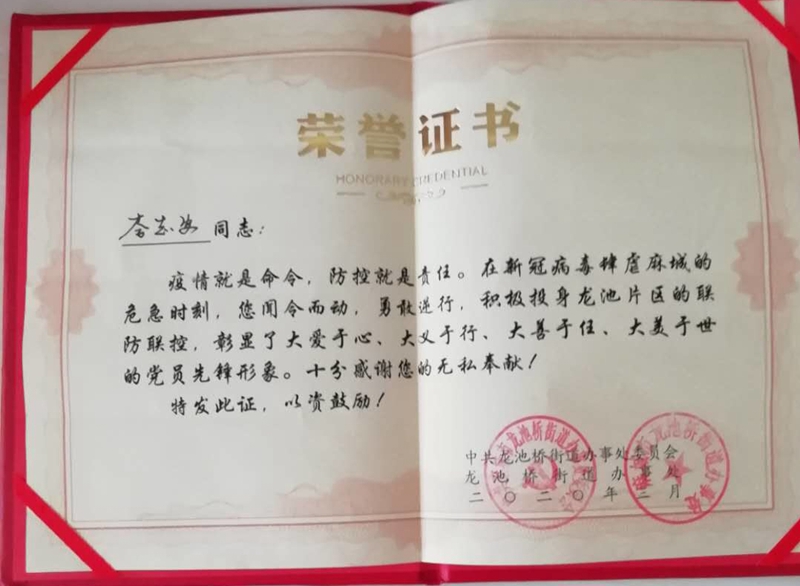 荣誉证书
HONORARY CREDENTIAL
同志：
疫情就是命令，防控就是责任。在新冠病毒肆虐麻城的
危急时刻，您闻令而动，勇敢逆行，积极投身龙池片区的联
防联控，彰显了大爱于心、大义于行、大善于任、大美于世
的党员先锋形象。十分感谢您的无私奉献！
特发此证，以资鼓励！
中共龙池桥街道办事处委员会
龙池桥街道办事处
二〇二〇年三月